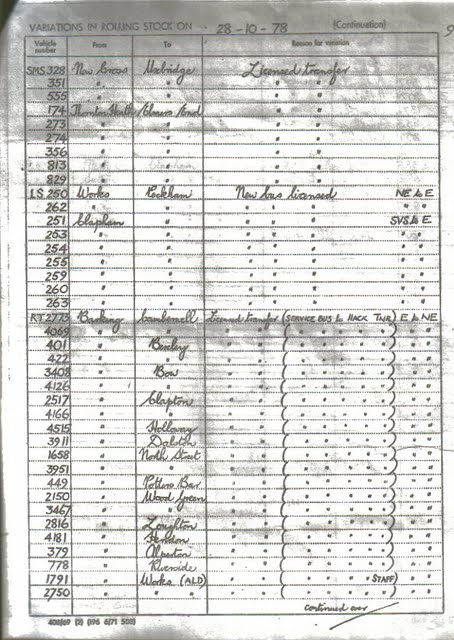 VARIATIONS IN ROLLING STOCK ON 28-10-78 (Continuation) 9
Vehicle number From To Reason for variation
SMS 328 New Cross Uxbridge Licensed transfer
351 " " " "
555 " " " "
174 Thornton Heath Elmers End " "
273 " " " "
274 " " " "
356 " " " "
813 " " " "
829 " " " "
LS 250 Works Peckham New bus licensed NE to E
262 " " " " " " "
251 Clapham " " " " SVS to E
253 " " " " " " "
254 " " " " " " "
255 " " " " " " "
259 " " " " " " "
260 " " " " " " "
263 " " " " " " "
RT 2773 Barking Camberwell Licensed transfer (SERVICE BUS to HACK TNR) E to NE
4069 " " " " ( " " " " " ) " "
401 " Bexley " " ( " " " " " ) " "
422 " " " " ( " " " " " ) " "
3408 " Bow " " ( " " " " " ) " "
4126 " " " " ( " " " " " ) " "
2517 " Clapton " " ( " " " " " ) " "
4166 " " " " ( " " " " " ) " "
4515 " Holloway " " ( " " " " " ) " "
3911 " Dalston " " ( " " " " " ) " "
1658 " North Street " " ( " " " " " ) " "
3951 " " " " ( " " " " " ) " "
449 " Potters Bar " " ( " " " " " ) " "
2150 " Wood Green " " ( " " " " " ) " "
3467 " " " " ( " " " " " ) " "
2816 " Loughton " " ( " " " " " ) " "
4181 " Hendon " " ( " " " " " ) " "
379 " Alperton " " ( " " " " " ) " "
778 " Riverside " " ( " " " " " ) " "
1791 " Works (ALD) " " ( " " " " STAFF) " "
2750 " " " " " ( " " " " " ) " "
continued over
408/69 (3) (196 6/71 500)